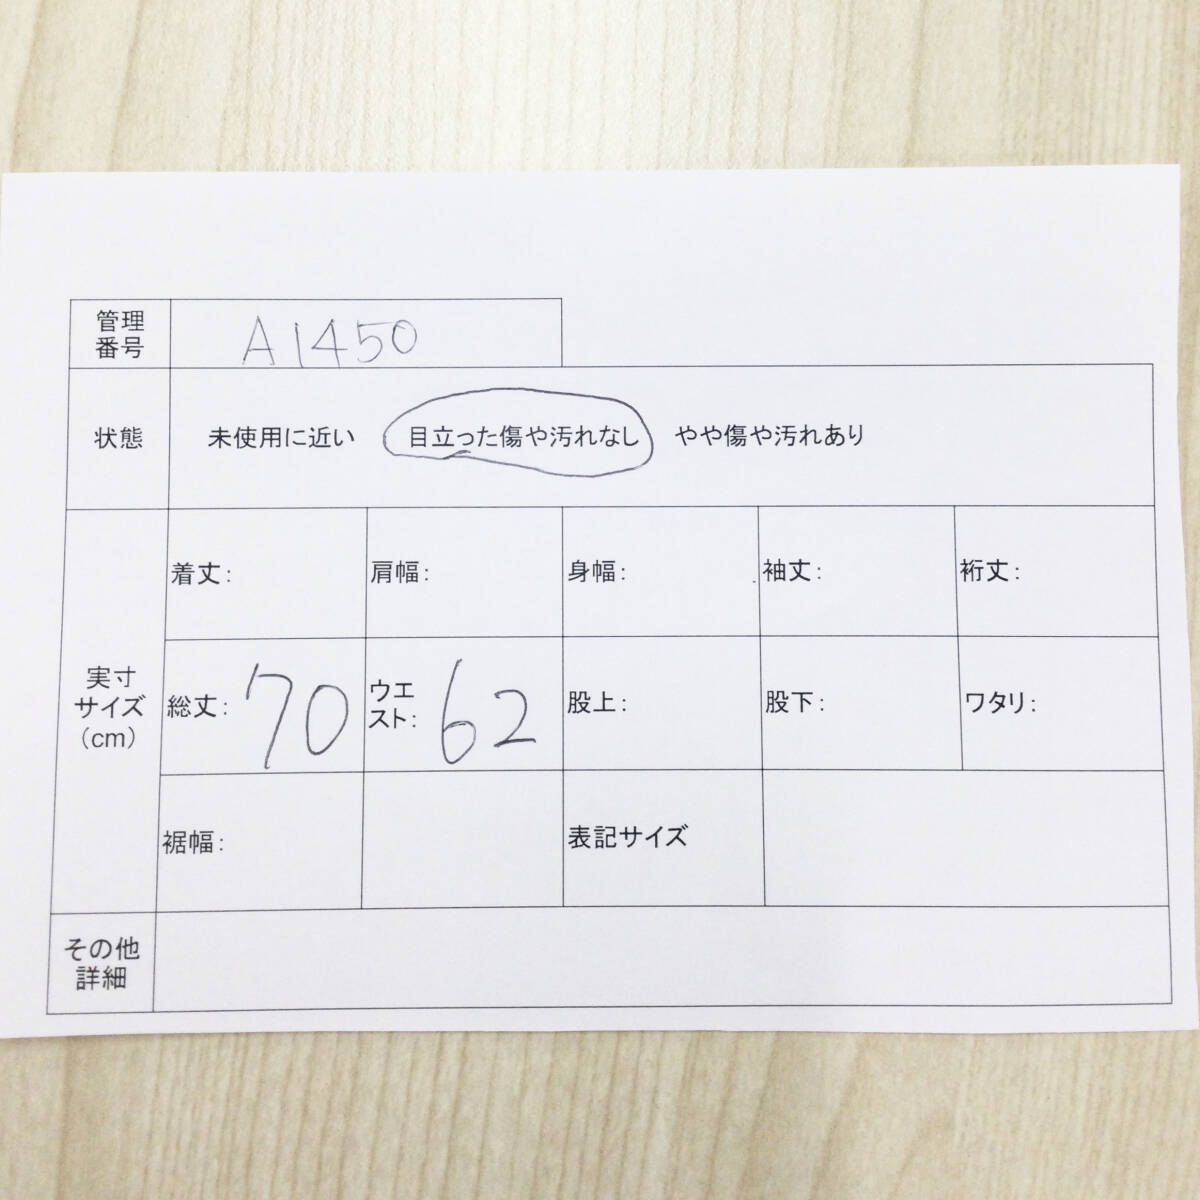 管理
番号
A1450
状態
未使用に近い 目立った傷や汚れなし やや傷や汚れあり
実寸
サイズ
(cm)
着丈: 肩幅: 身幅: 袖丈: 裄丈:
総丈: 70
ウエ
スト: 62
股上: 股下: ワタリ:
裾幅: 表記サイズ
その他
詳細